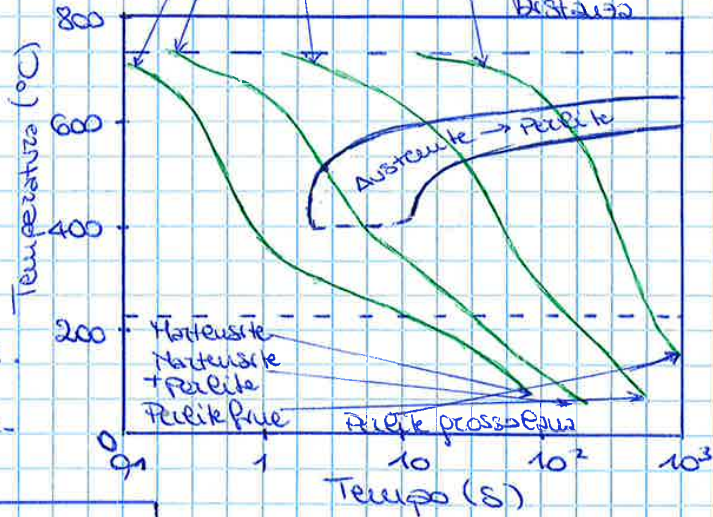 Distanza
800
600
400
200
0
Temperatura (°C)
Austenite → Perlite
Martensite
Martensite
+ Perlite
Perlite fine
Perlite grossolana
0,1
1
10
10²
10³
Tempo (s)